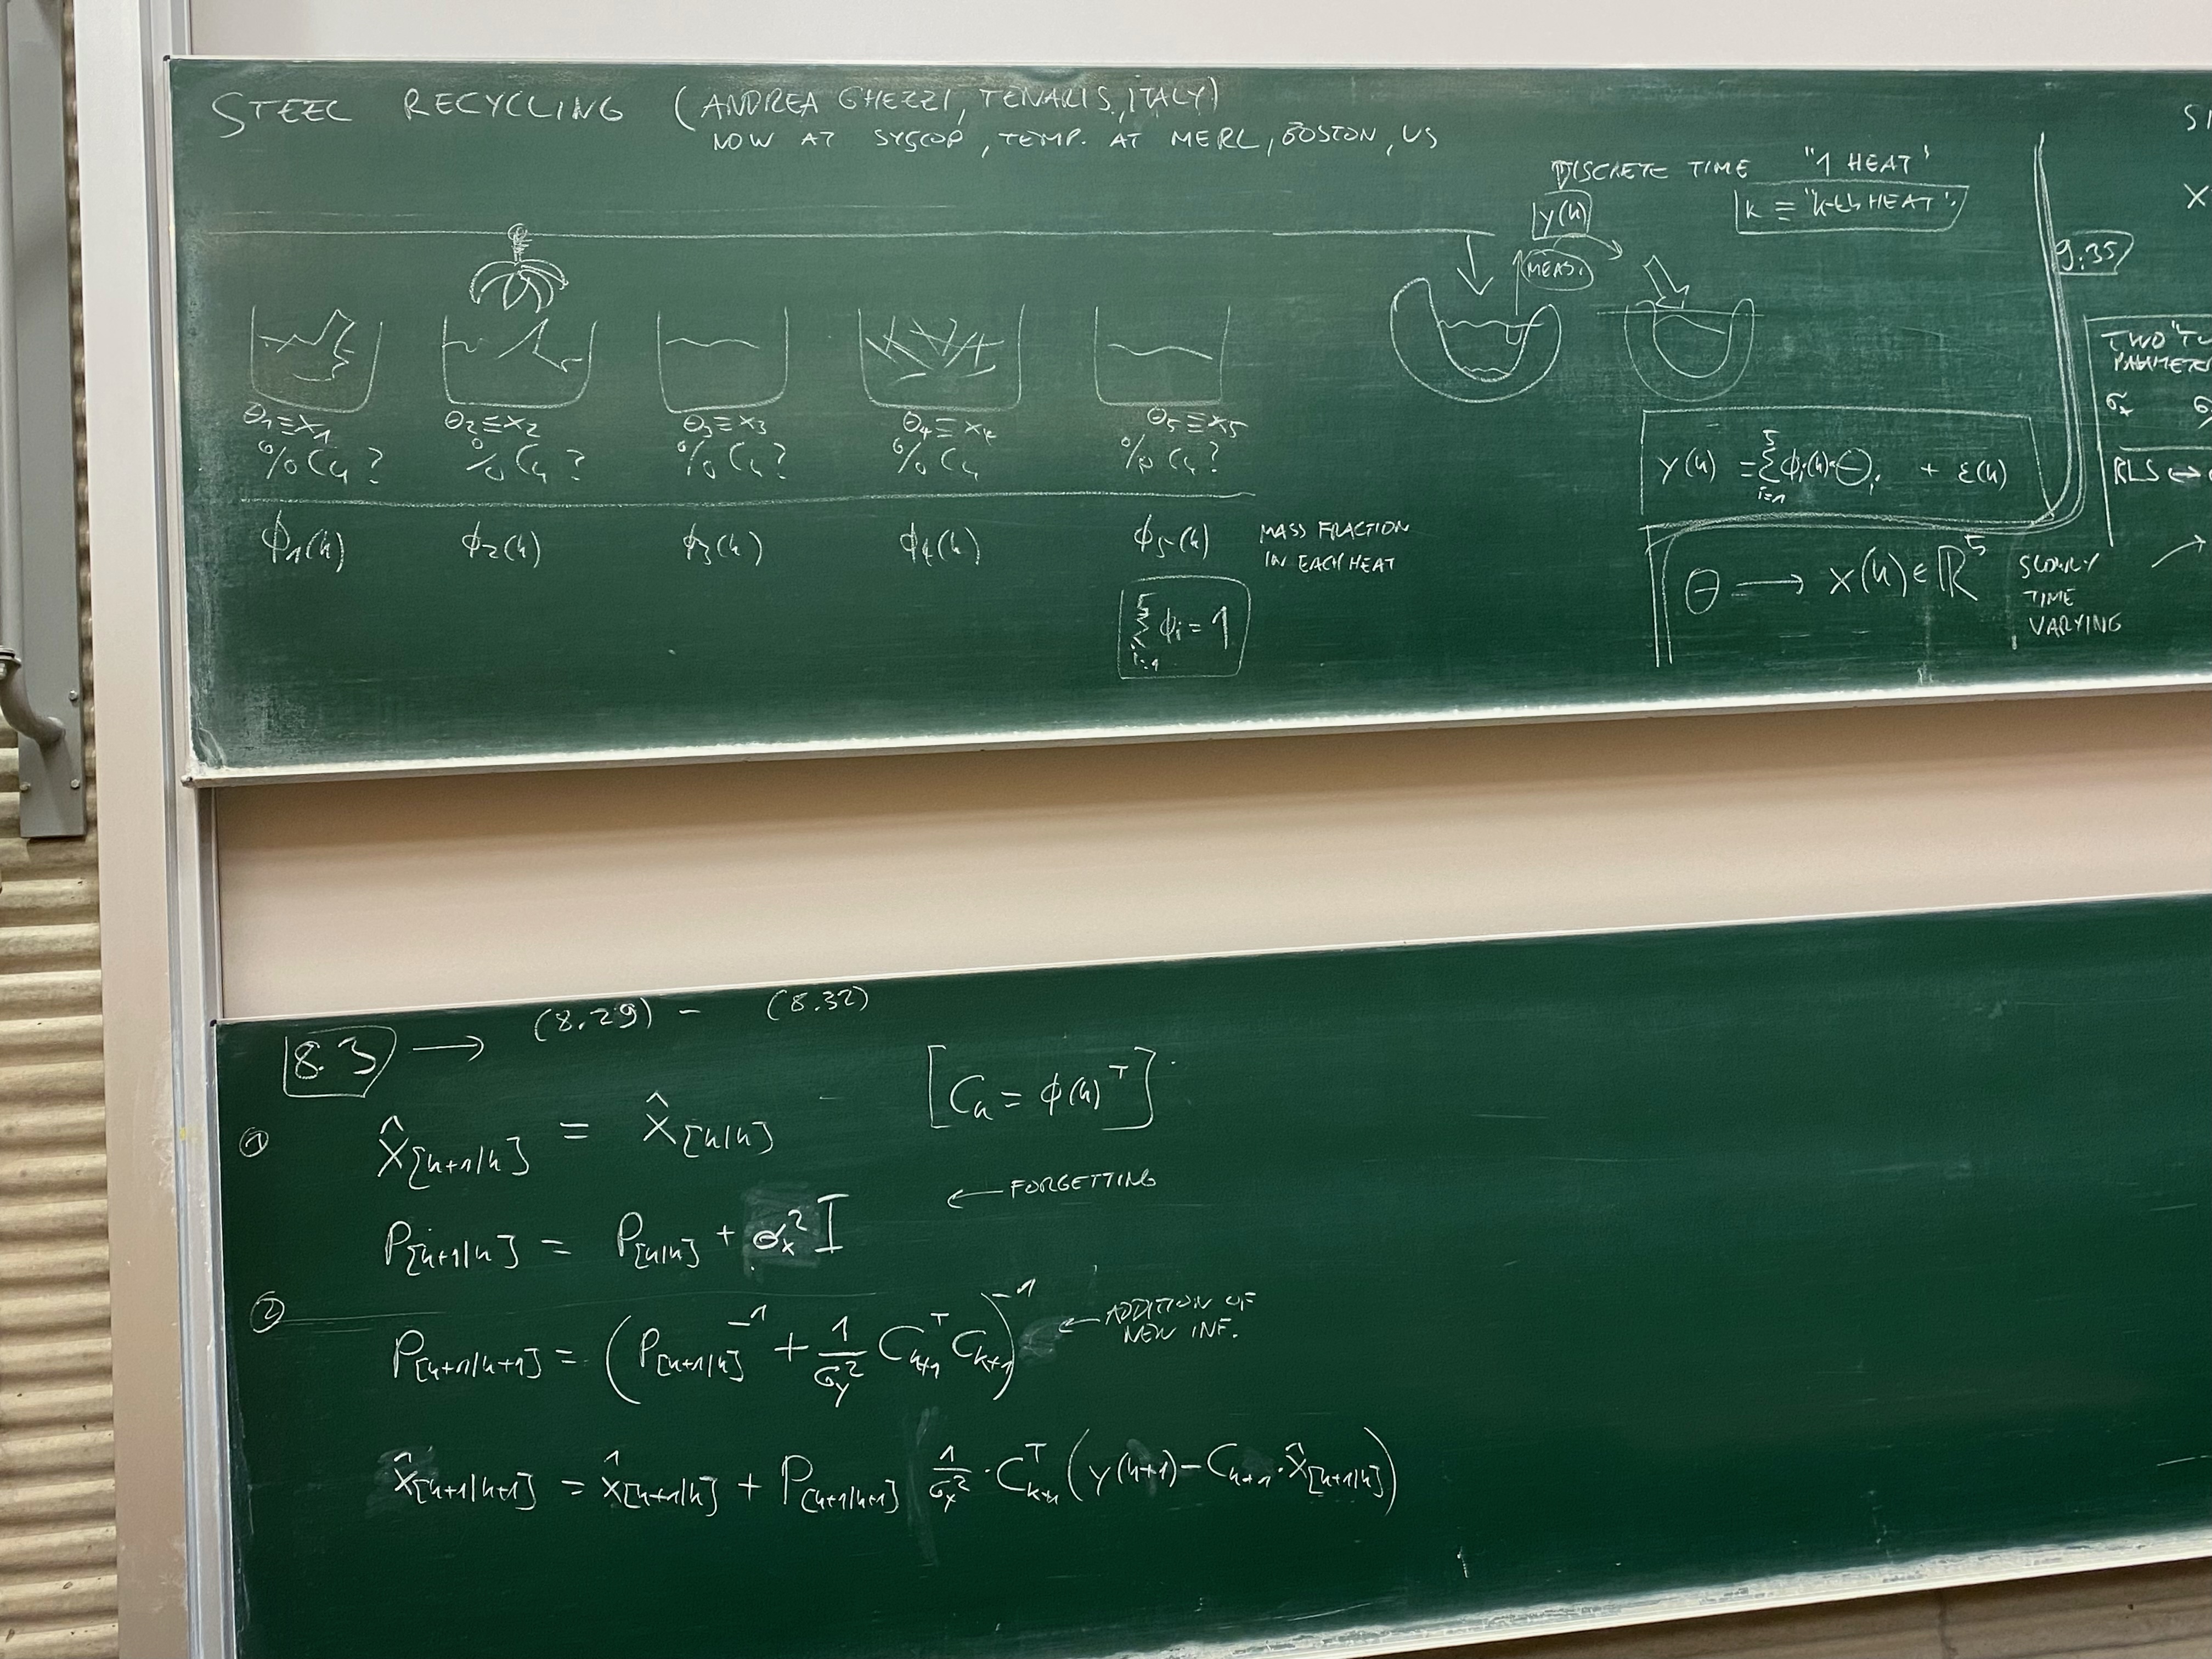 STEEL RECYCLING (ANDREA GHEZZI, TENARIS, ITALY)
NOW AT SYSCOP, TEMP. AT MERL, BOSTON, US
DISCRETE TIME "1 HEAT"
k ≡ "k-th HEAT"
y(k)
MEAS.
θ₁≡x₁ θ₂≡x₂ θ₃≡x₃ θ₄≡x₄ θ₅≡x₅
% Cu ? % Cu ? % Cu ? % Cu % Cu ?
ϕ₁(k) ϕ₂(k) ϕ₃(k) ϕ₄(k) ϕ₅(k) MASS FRACTION
IN EACH HEAT
∑_{i=1}^{5} ϕi = 1
y(k) = ∑_{i=1}^{5} ϕi(k)·θi + ε(k)
θ → x(k) ∈ ℝ⁵ SLOWLY
TIME
VARYING
9:35
X
TWO
σx
RLS ↔
8.3 → (8.29) - (8.32)
[C_k = ϕ(k)^T]
① x̂[k+1|k] = x̂[k|k]
P[k+1|k] = P[k|k] + σx² I ← FORGETTING
② P[k+1|k+1] = (P[k+1|k]^-1 + 1/σy² C_{k+1}^T C_{k+1})^-1 ← ADDITION OF
NEW INF.
x̂[k+1|k+1] = x̂[k+1|k] + P[k+1|k+1] 1/σy² · C_{k+1}^T (y(k+1) - C_{k+1} · x̂[k+1|k])